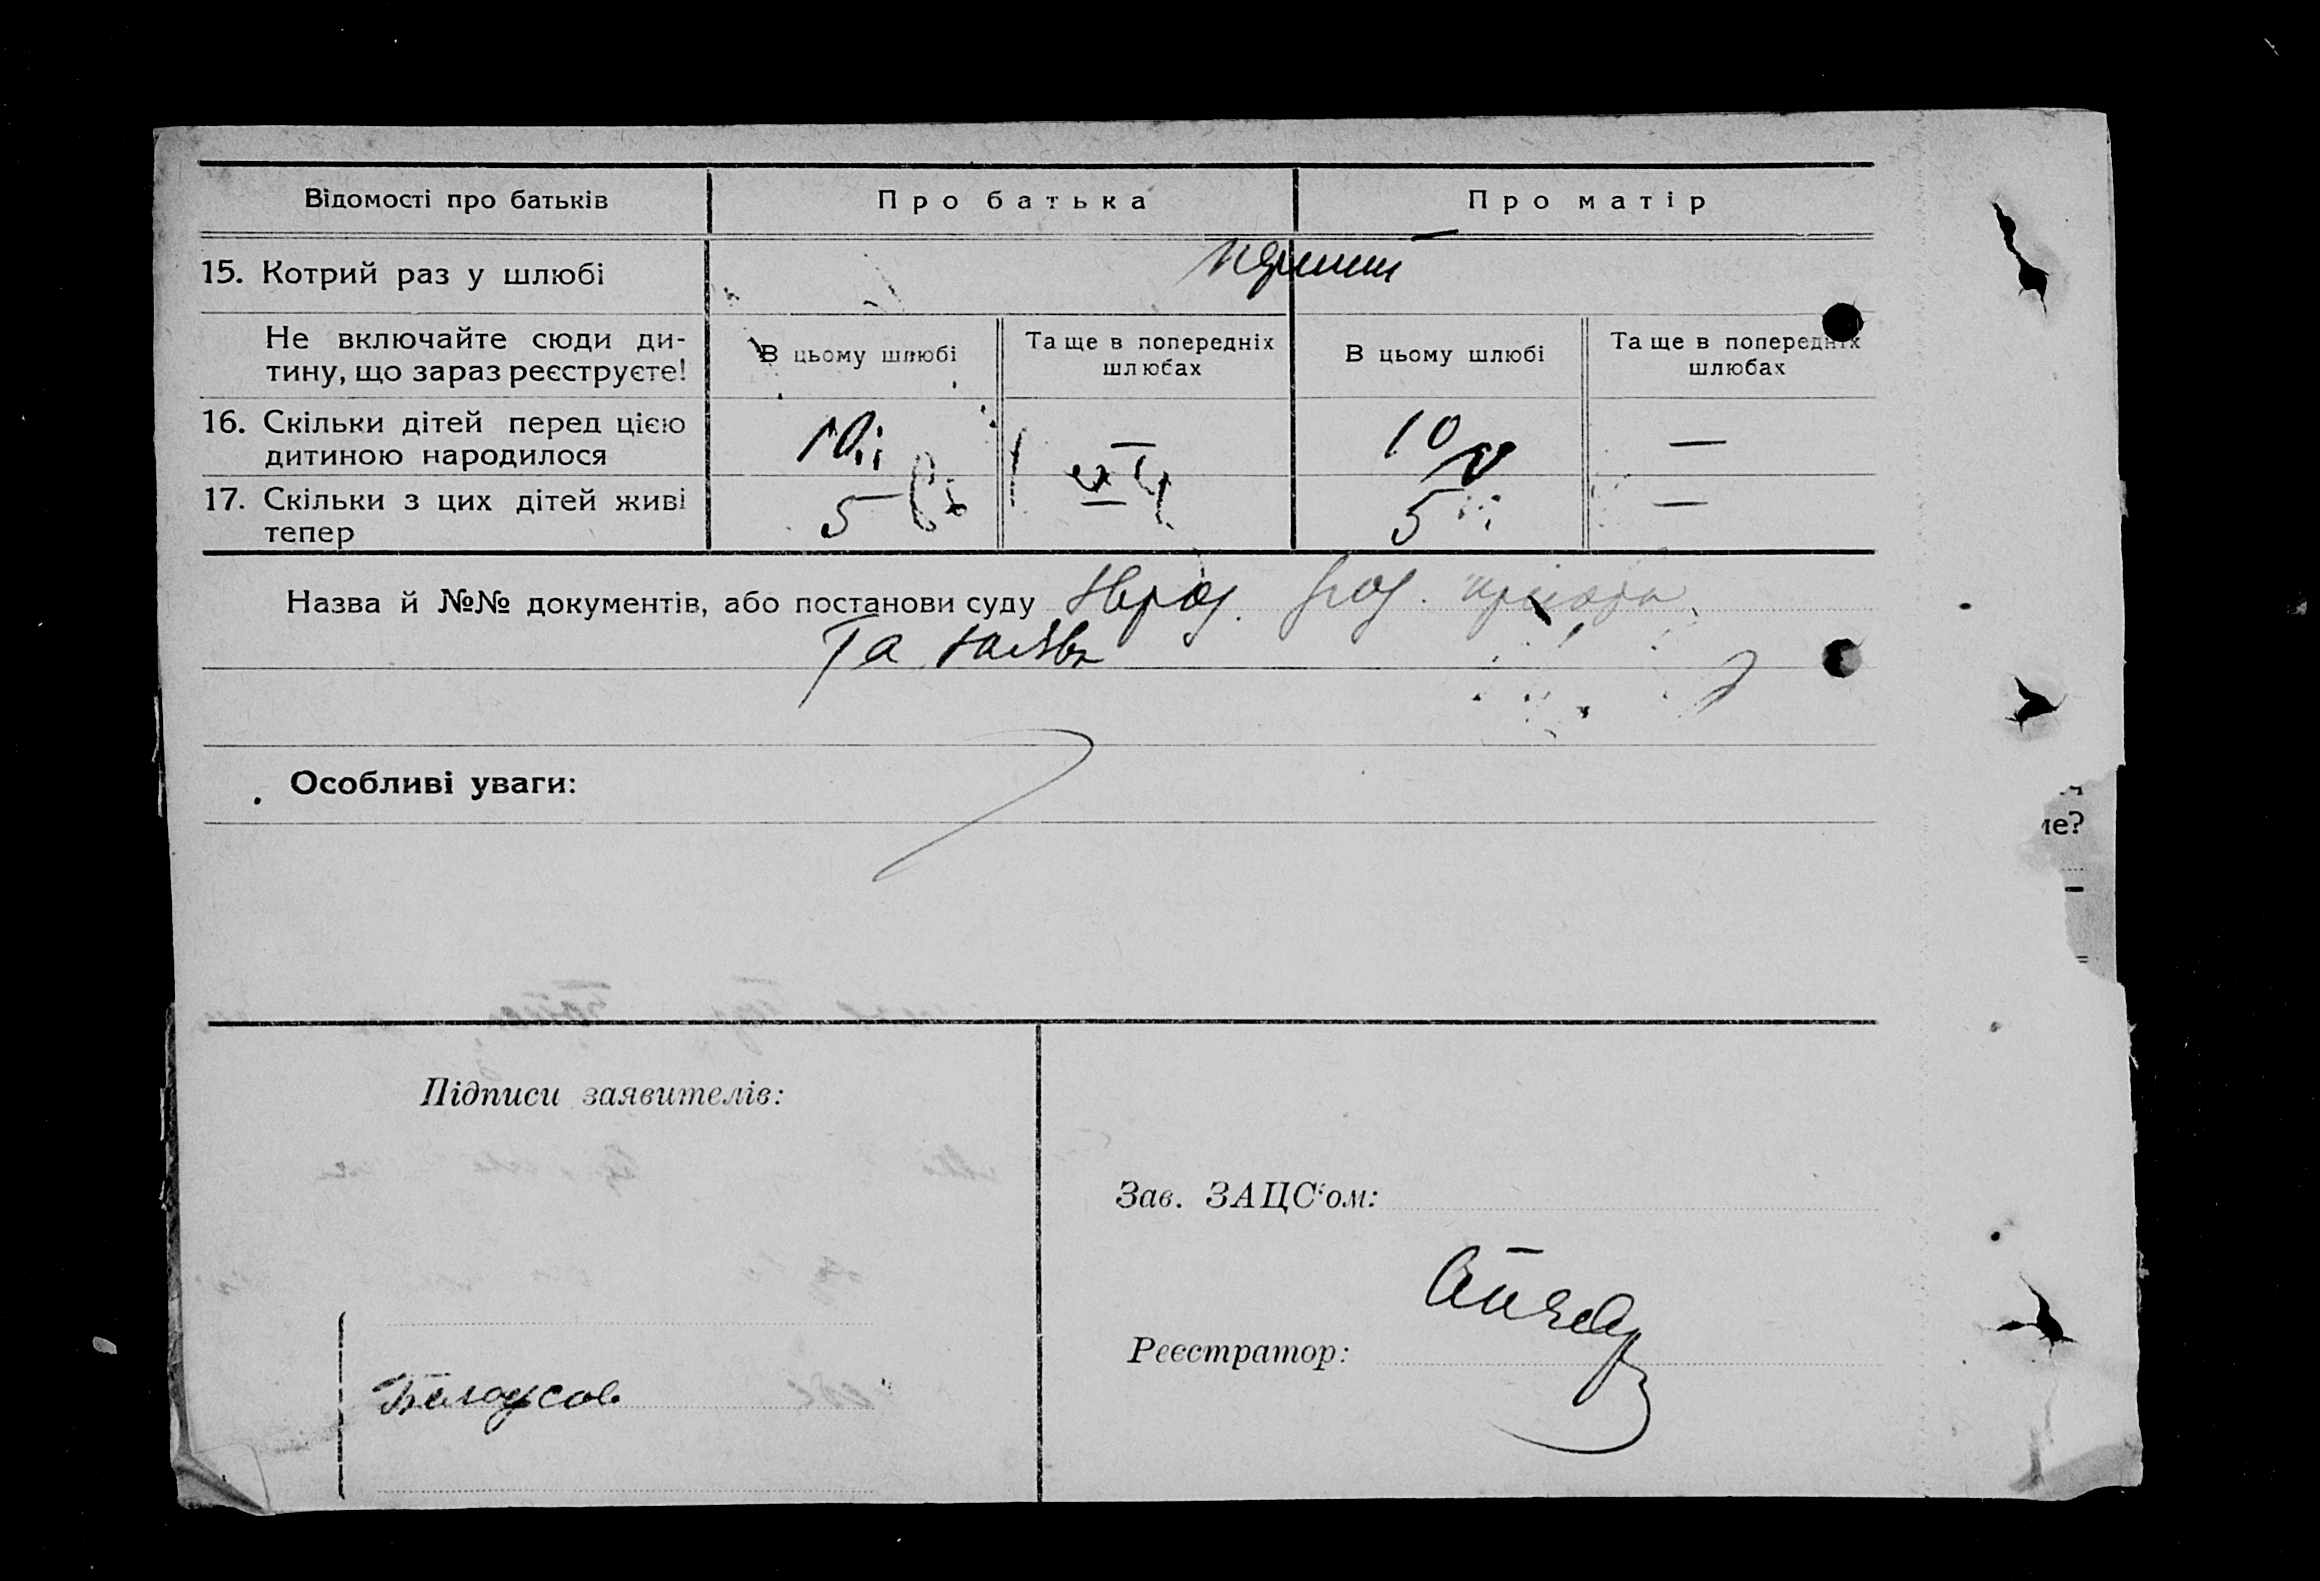 Відомості про батьків
Про батька
Про матір
15. Котрий раз у шлюбі
перший
Не включайте сюди ди-
тину, що зараз реєструєте!
В цьому шлюбі
Та ще в попередніх
шлюбах
В цьому шлюбі
Та ще в попередніх
шлюбах
16. Скільки дітей перед цією
дитиною народилося
10
—
10
—
17. Скільки з цих дітей живі
тепер
5
—
5
—
Назва й №№ документів, або постанови суду
та заява
Особливі уваги:
ме?
Підписи заявителів:
Зав. ЗАЦС‘ом:
Реєстратор:
Белоусов